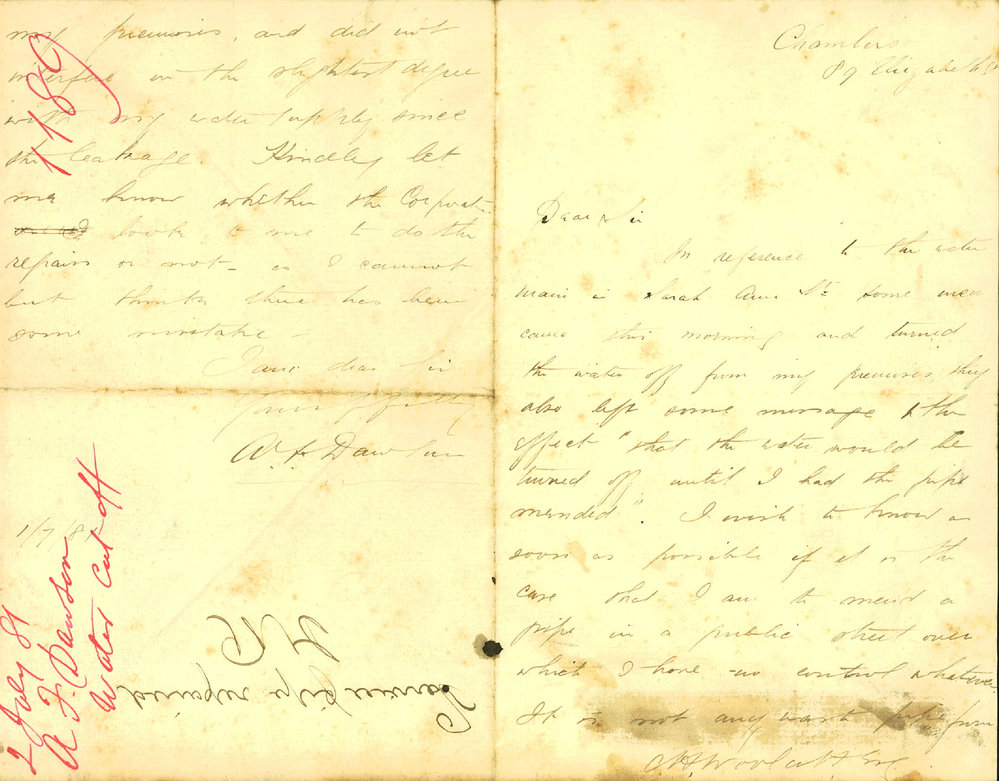 Chambers
89 Elizabeth St
Dear Sir
In reference to the water
main in Sarah Ann St. some men
came this morning and turned
the water off from my premises they
also left some message to the
effect "that the water would be
turned off until I had the pipe
mended". I wish to know as
soon as possible if it is the
case that I am to mend a
pipe in a public street over
which I have no control whatever
It is not any waste pipe from
A H Woolcott Esq
my premises, and did not
interfere in the slightest degree
with my water supply since
the leakage. Kindly let
me know whether the Corporation
look to me to do the
repairs or not - as I cannot
but think there has been
some mistake
I am dear Sir
Yours
A. F. Dawson
1/7/81
1189
2 July 81
A. F. Dawson
Water cut off
Service pipe repaired